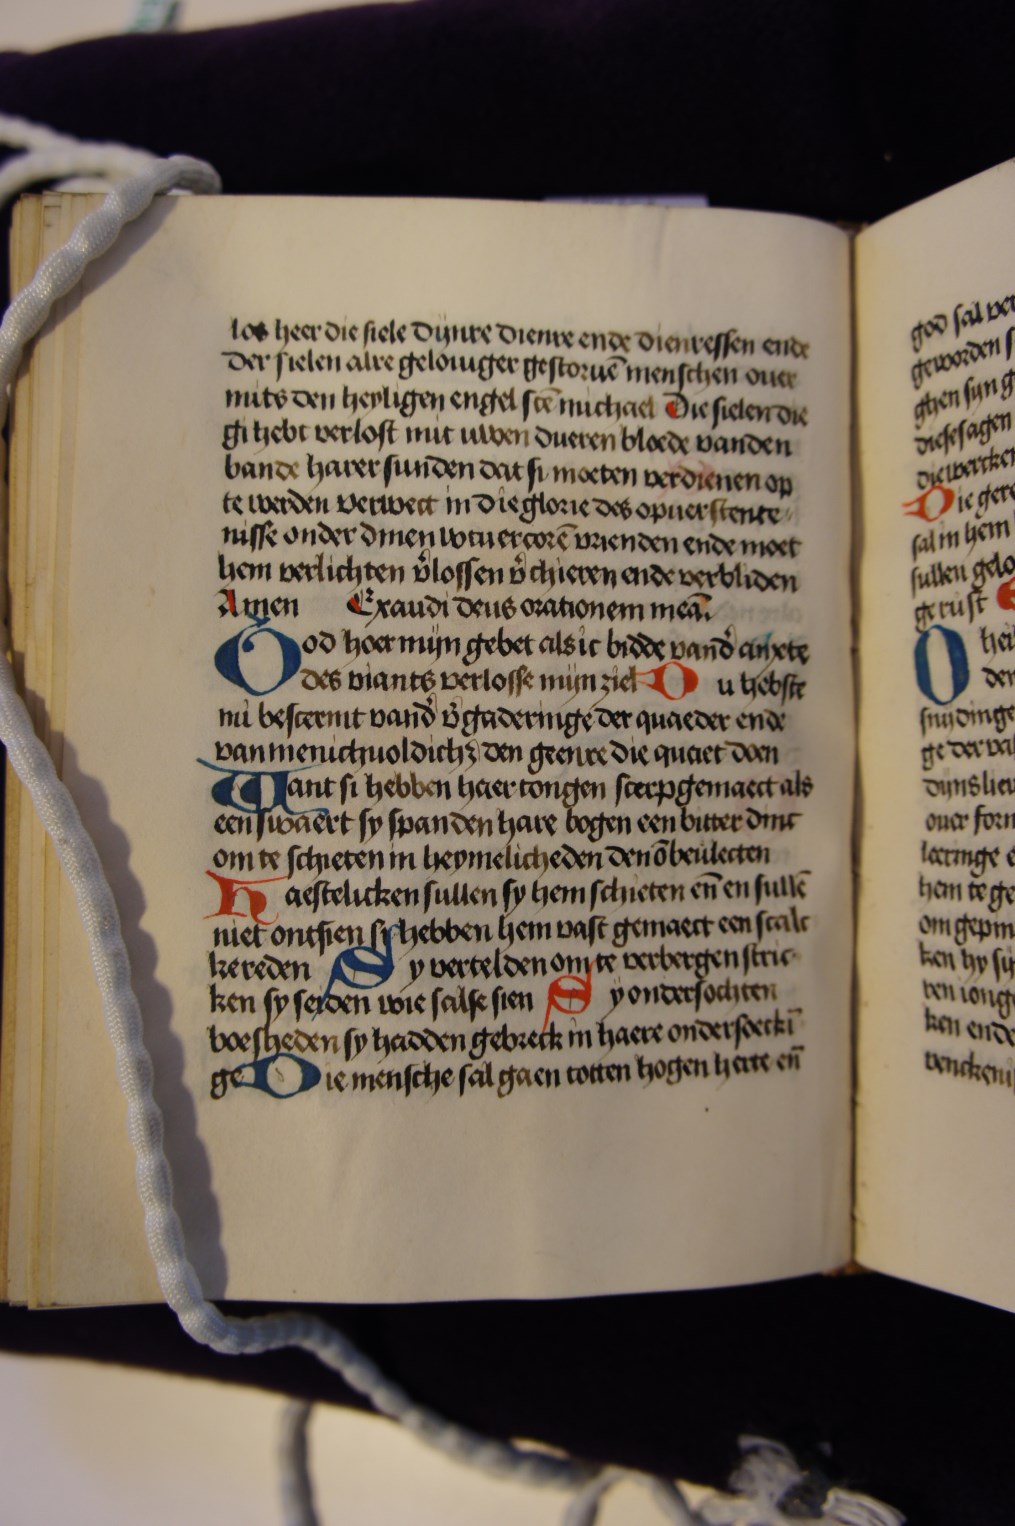 los heer die siele dijnre dienre ende dienressen ende
der sielen alre gelouiger gestoruē menschen ouer
mits den heyligen engel scē michael Die sielen die
gi hebt verlost mit uwen dueren bloede vanden
bande harer sunden dat si moeten verdienen op
te werden verwect in die glorie des opuerstente
nisse onder dinen wtuercorē vrienden ende moet
hem verlichten v̉lossen v̉chieren ende verbliden
Amen Exaudi deus orationem meā.
God hoer mijn gebet als ic bidde vand̉ anxte
des viants verlosse mijn ziel Du hebste
mi bescermt vand̉ v̉gaderinge der quaeder ende
van menichuoldich den geenre die quaet doen
Want si hebben haer tongen scerp gemaect als
een swaert sy spanden hare bogen een bitter dinc
om te schieten in heymelicheden den ōbeulecten
Haestelicken sullen sy hem schieten eñ en sullē
niet ontsien sy hebben hem vast gemaect een scalc
ke reden Sy vertelden om te verbergen stric
ken sy seiden wie salse sien Sy ondersochten
boesheden sy hadden gebreck in haere ondersoecki
ge Die mensche sal gaen totten hogen herte eñ
god sal ver
geworden s
ghen sijn g
die wercken
Die gere
sal in hem
sullen gelo
ge rust
O hei
der
snijdinge
ge der val
dijns lieu
ouer form
leeringe e
hem te ge
om gepin
ken hy
ven iong
ken ende